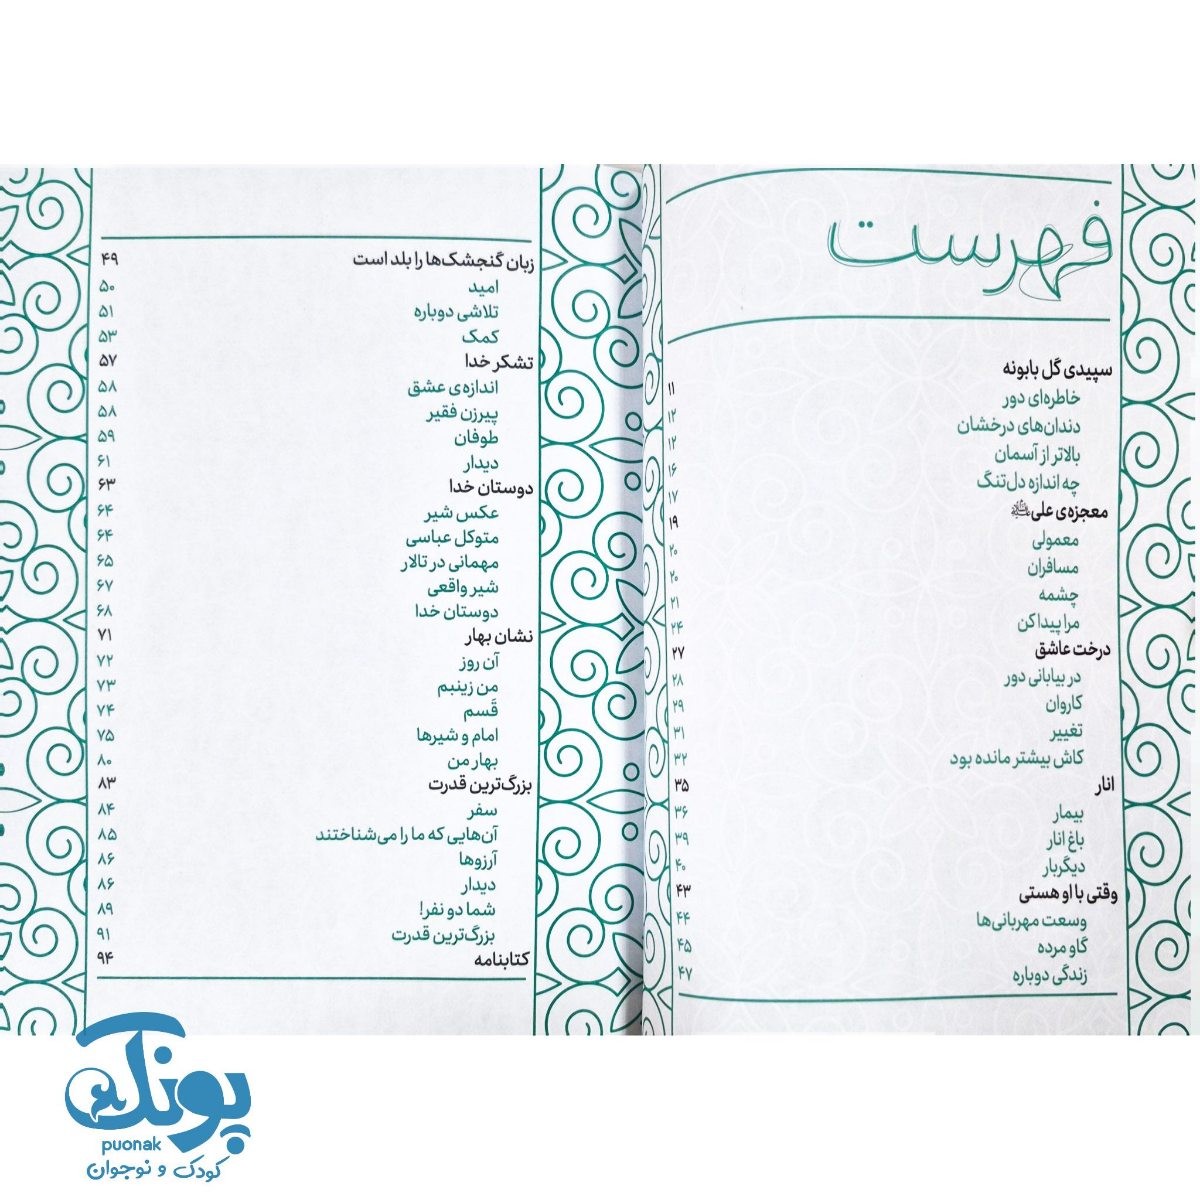 فهرست
سپیدی گل بابونه ۱۱
خاطره‌ای دور ۱۲
دندان‌های درخشان ۱۲
بالاتر از آسمان ۱۶
چه اندازه دل‌تنگ ۱۷
معجزه‌ی علی ۱۹
معمولی ۲۰
مسافران ۲۰
چشمه ۲۱
مرا پیدا کن ۲۴
درخت عاشق ۲۷
در بیابانی دور ۲۸
کاروان ۲۹
تغییر ۳۱
کاش بیشتر مانده بود ۳۲
انار ۳۵
بیمار ۳۶
باغ انار ۳۹
دیگربار ۴۰
وقتی با او هستی ۴۳
وسعت مهربانی‌ها ۴۴
گاو مرده ۴۵
زندگی دوباره ۴۷
زبان گنجشک‌ها را بلد است ۴۹
امید ۵۰
تلاشی دوباره ۵۱
کمک ۵۳
تشکر خدا ۵۷
اندازه‌ی عشق ۵۸
پیرزن فقیر ۵۸
طوفان ۵۹
دیدار ۶۱
دوستان خدا ۶۳
عکس شیر ۶۴
متوکل عباسی ۶۴
مهمانی در تالار ۶۵
شیر واقعی ۶۷
دوستان خدا ۶۸
نشان بهار ۷۱
آن روز ۷۲
من زینبم ۷۳
قَسم ۷۴
امام و شیرها ۷۵
بهار من ۸۰
بزرگ‌ترین قدرت ۸۳
سفر ۸۴
آن‌هایی که ما را می‌شناختند ۸۵
آرزوها ۸۶
دیدار ۸۶
شما دو نفر! ۸۹
بزرگ‌ترین قدرت ۹۱
کتابنامه ۹۴
پونک
puonak
کودک و نوجوان